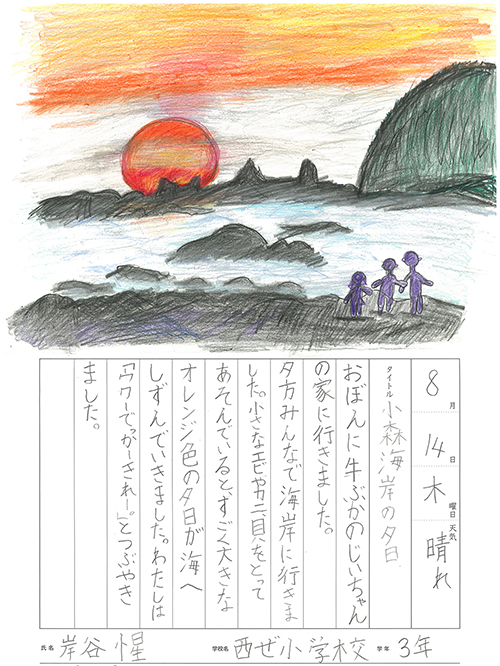 8月14日木曜日 天気 晴れ
タイトル 小森海岸の夕日
おぼんに牛ぶかのじいちゃん
の家に行きました。
夕方みんなで海岸に行きま
した。小さなエビやカニ、貝をとって
あそんでいると、すごく大きな
オレンジ色の夕日が海へ
しずんでいきました。わたしは
「ウワーでっかーきれー」とつぶやき
ました。
氏名 岸谷 惺 学校名 西ぜ小学校 学年 3年